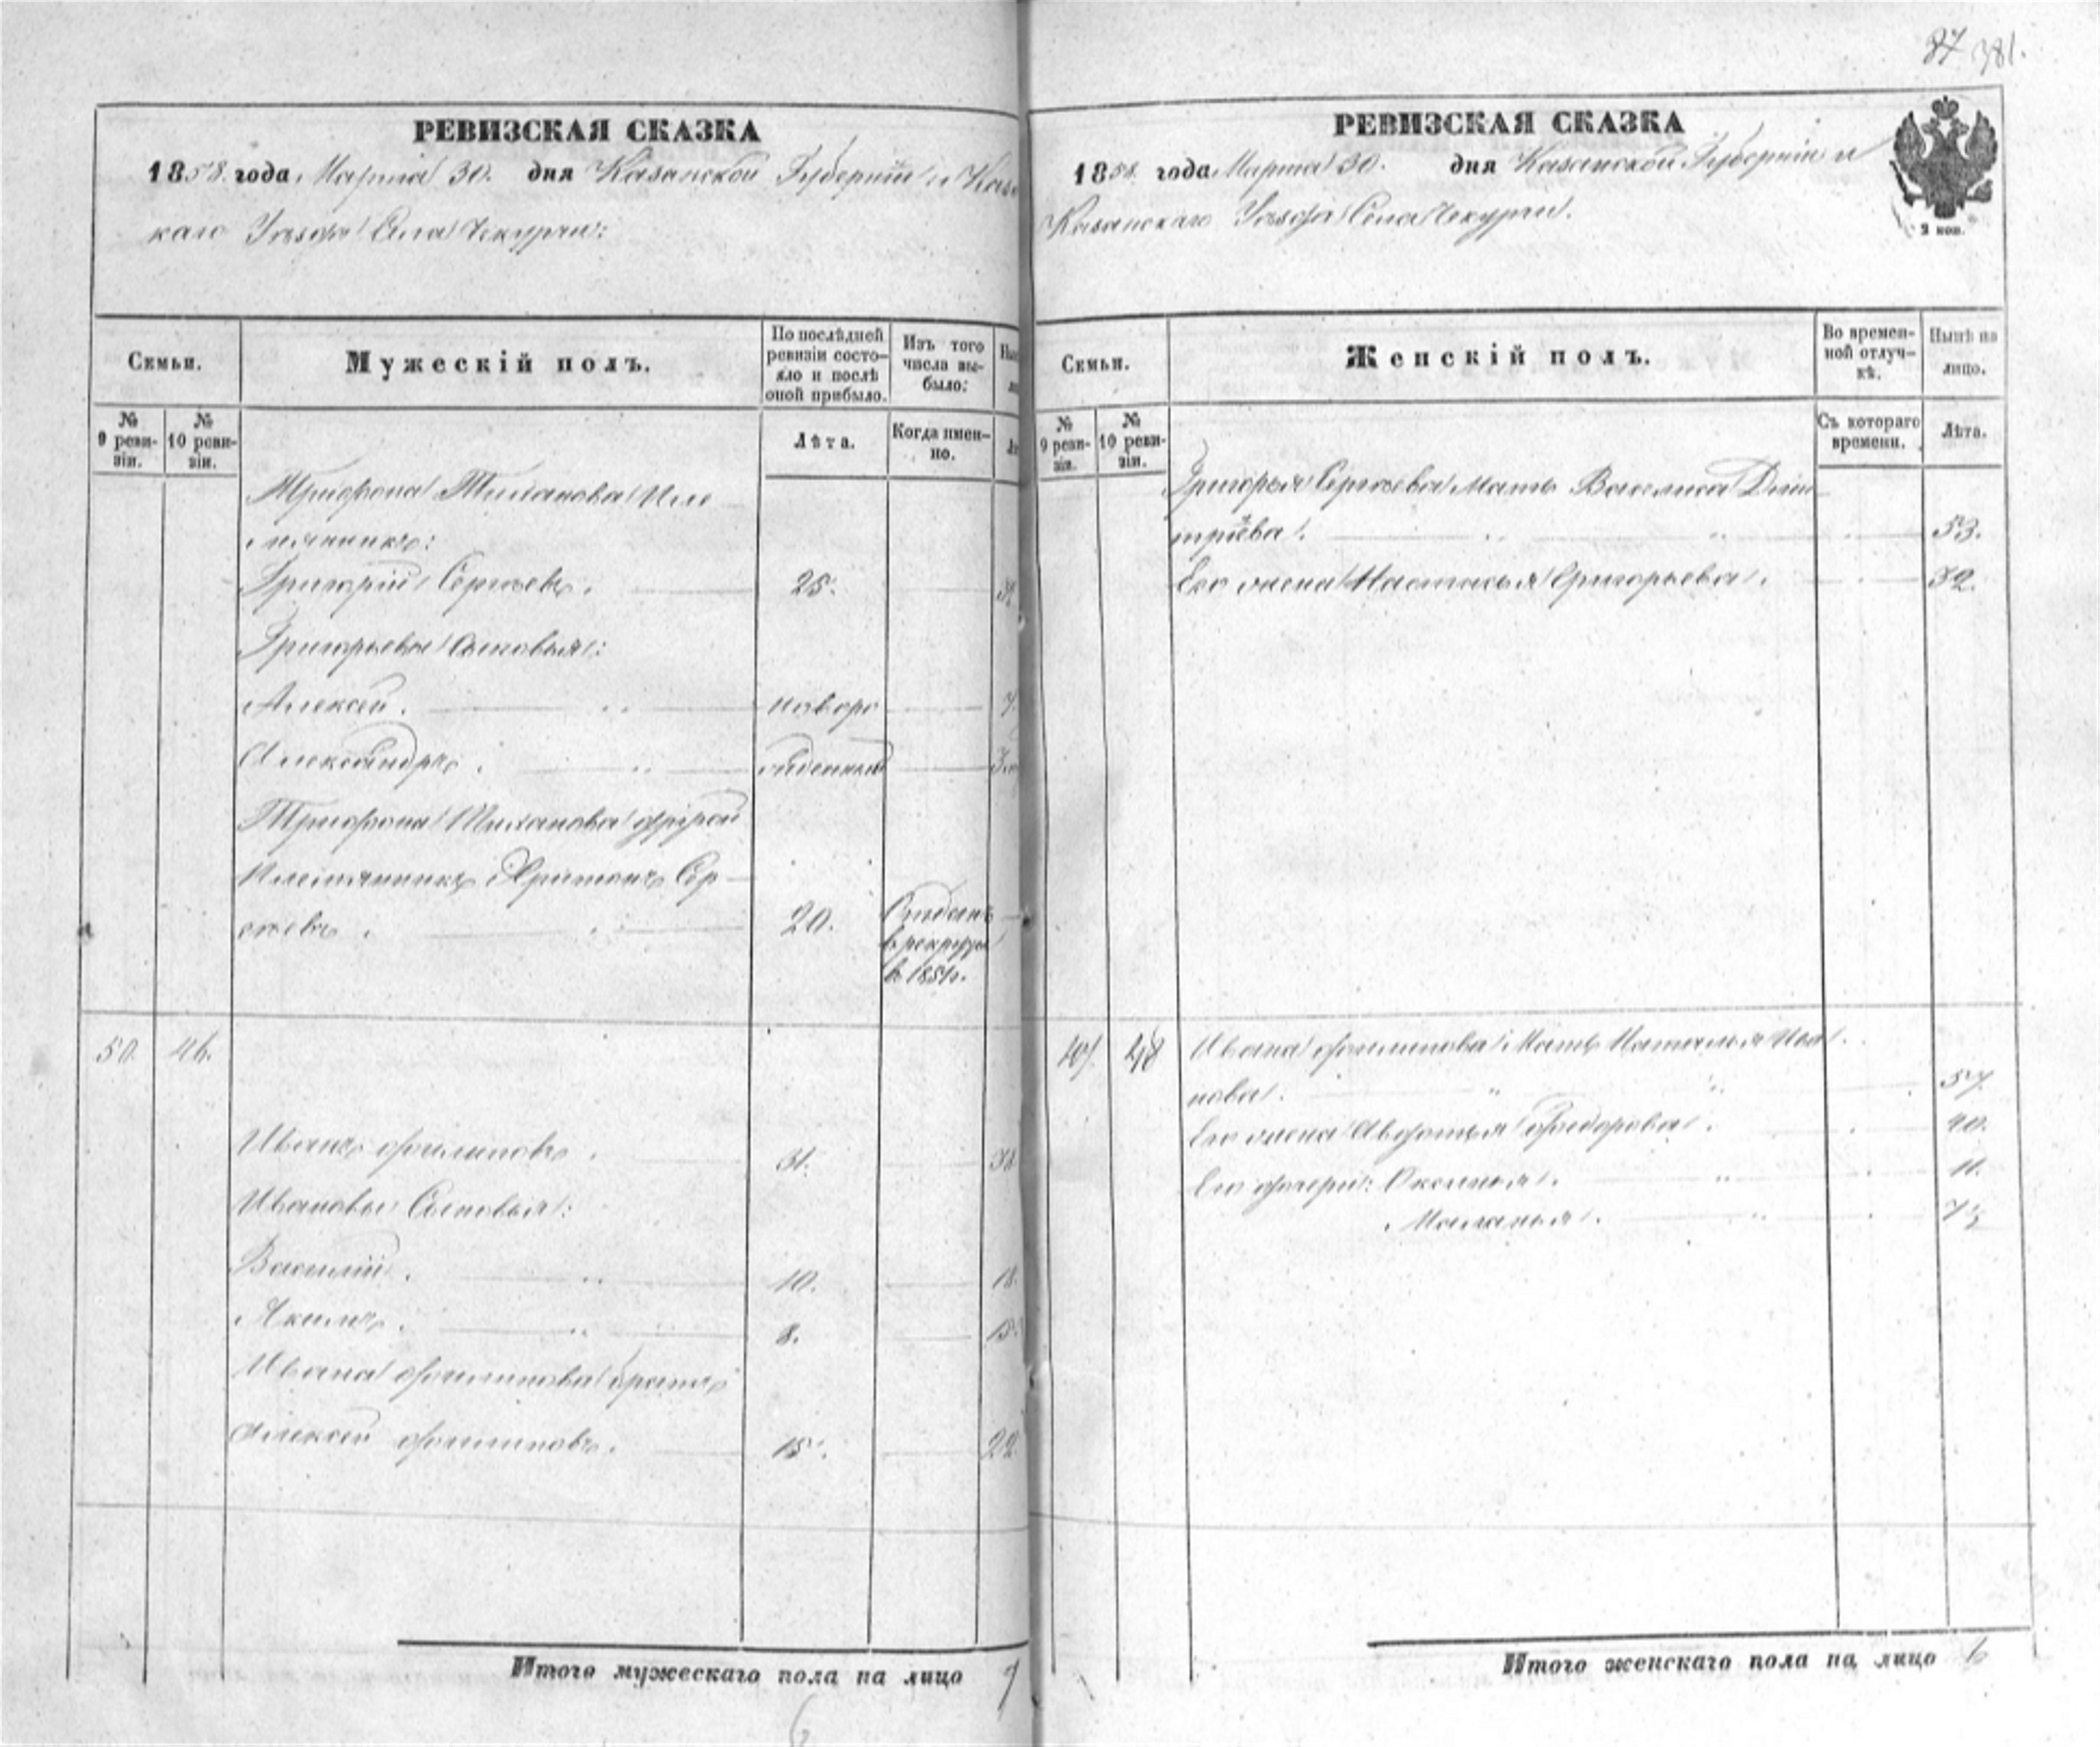 87 381.
РЕВИЗСКАЯ СКАЗКА
1858. года Марта 30. дня Казанской Губерніи и Казан
каго Уезда Села Чекурчи:
Семьи.
Мужескій полъ.
По послѣдней ревизіи состояло и послѣ оной прибыло.
Изъ того числа выбыло:
№ 9 ревизіи.
№ 10 ревизіи.
Лѣта.
Когда именно.
Трифона Тиханова Пле
мянникъ:
Григорій Сергѣевъ. 25.
Григорьевы Сыновья:
Алексей. новоро 7.
Александръ. жденный
Трифона Тиханова другой
Племянникъ Харитонъ Сер
гѣевъ. 20. Отданъ
в рекруты
в 185
50. 46.
Иванъ Филиповъ. 31. 38
Ивановы Сыновья:
Василій. 10. 18.
Якимъ. 8. 15.
Ивана Филипова братъ
Алексей Филиповъ. 15. 22.
Итого мужескаго пола на лицо 7
6
РЕВИЗСКАЯ СКАЗКА
1858. года Марта 30. дня Казанской Губерніи и
Казанскаго Уезда Села Чекурчи.
2 коп.
Семьи.
Женскій полъ.
Во временной отлучкѣ.
Нынѣ на лицо.
№ 9 ревизіи.
№ 10 ревизіи.
Съ котораго времени.
Лѣта.
Григорья Сергѣева Мать Василиса Дми
тріева. 53.
Его жена Настасья Григорьева. 32.
48 Ивана Филипова Мать Наталья Ива
нова. 57.
Его жена Авдотья Федорова. 40.
Его дочери: Аксинья. 11.
Маланья.
Итого женскаго пола на лицо 6